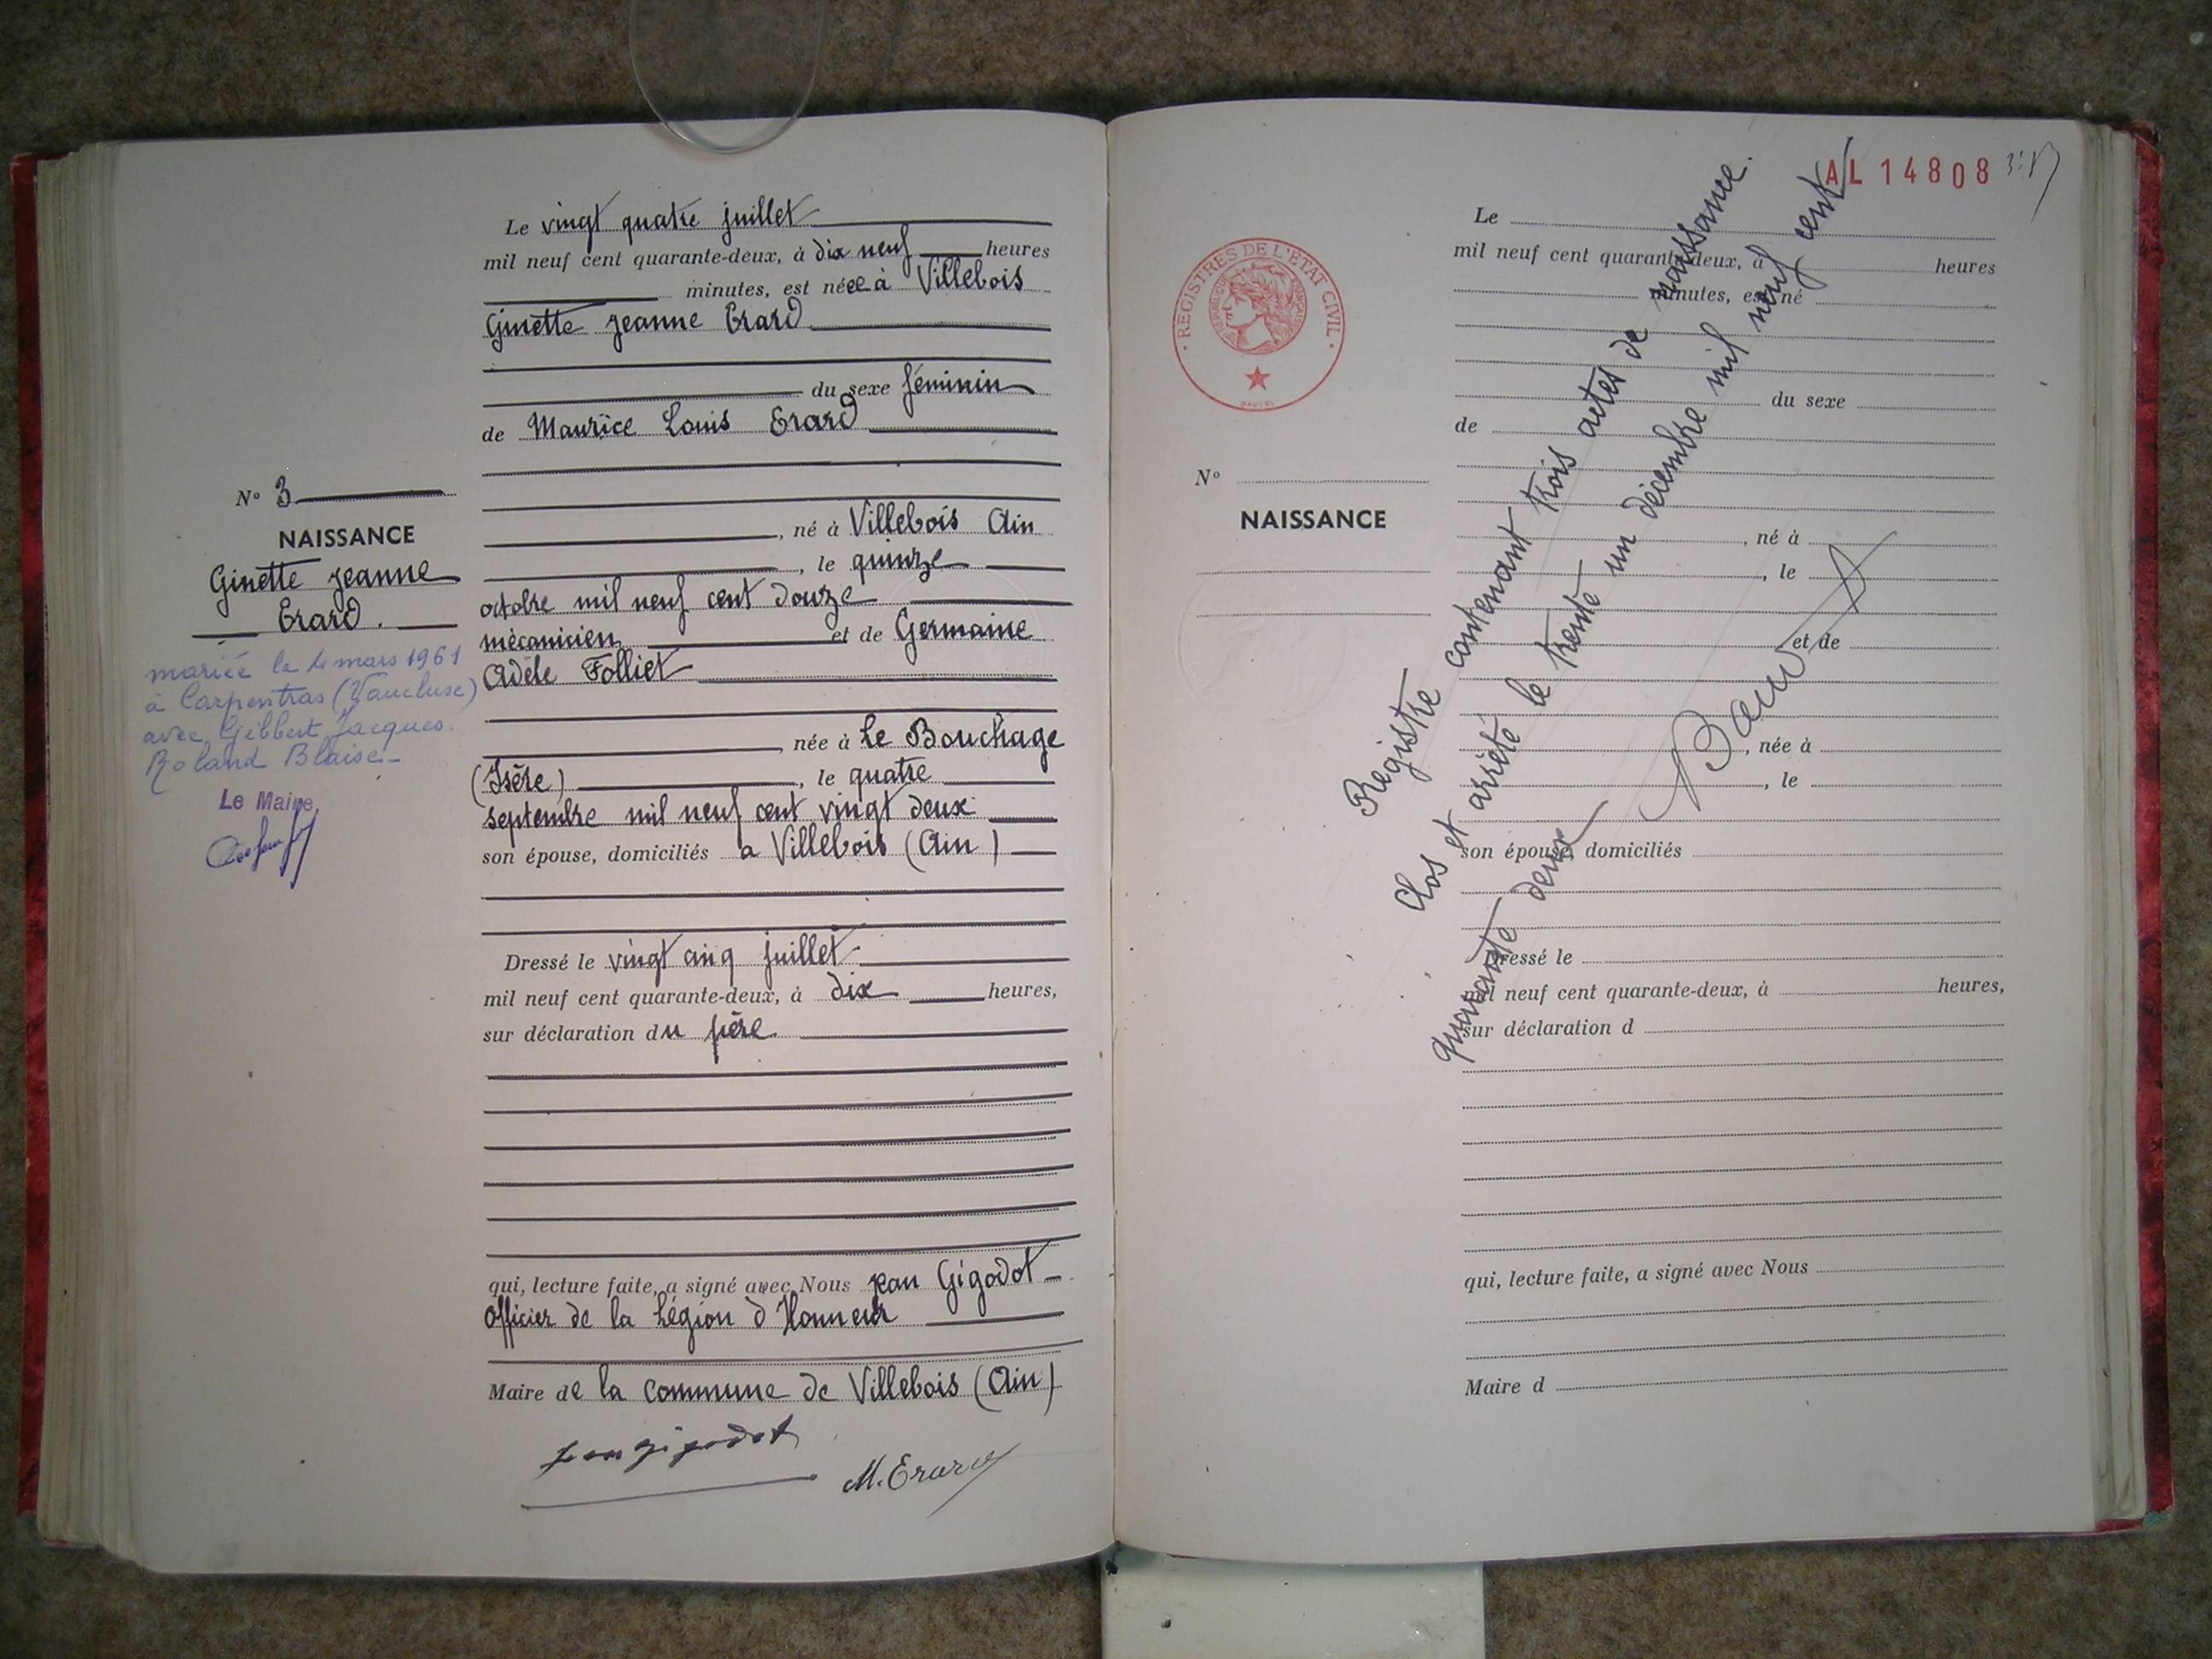 N° 3
NAISSANCE
Ginette Jeanne
Erard.
mariée le 4 mars 1961
à Carpentras (Vaucluse)
avec Gilbert Jacques
Roland Blaise
Le Maire
Le vingt quatre juillet
mil neuf cent quarante-deux, à dix neuf heures
minutes, est née à Villebois
Ginette Jeanne Erard
du sexe féminin
de Maurice Louis Erard
, né à Villebois Ain
, le quinze
octobre mil neuf cent douze
mécanicien et de Germaine
Adèle Folliet
, née à Le Bouchage
(Isère) , le quatre
septembre mil neuf cent vingt deux
son épouse, domiciliés a Villebois (Ain)
Dressé le vingt cinq juillet
mil neuf cent quarante-deux, à dix heures,
sur déclaration du père
qui, lecture faite, a signé avec Nous Jean Gigodot
Officier de la Légion d'Honneur
Maire de la commune de Villebois (Ain)
Jean Gigodot
M. Erard
AL 14808
REGISTRES DE L'ÉTAT CIVIL
N°
NAISSANCE
Le
mil neuf cent quarante-deux, à heures
minutes, est né
du sexe
de
, né à
, le
et de
, née à
, le
son épouse, domiciliés
Dressé le
mil neuf cent quarante-deux, à heures,
sur déclaration d
qui, lecture faite, a signé avec Nous
Maire d
Registre contenant trois actes de naissance.
Clos et arrêté le trente un décembre mil neuf cent
quarante deux